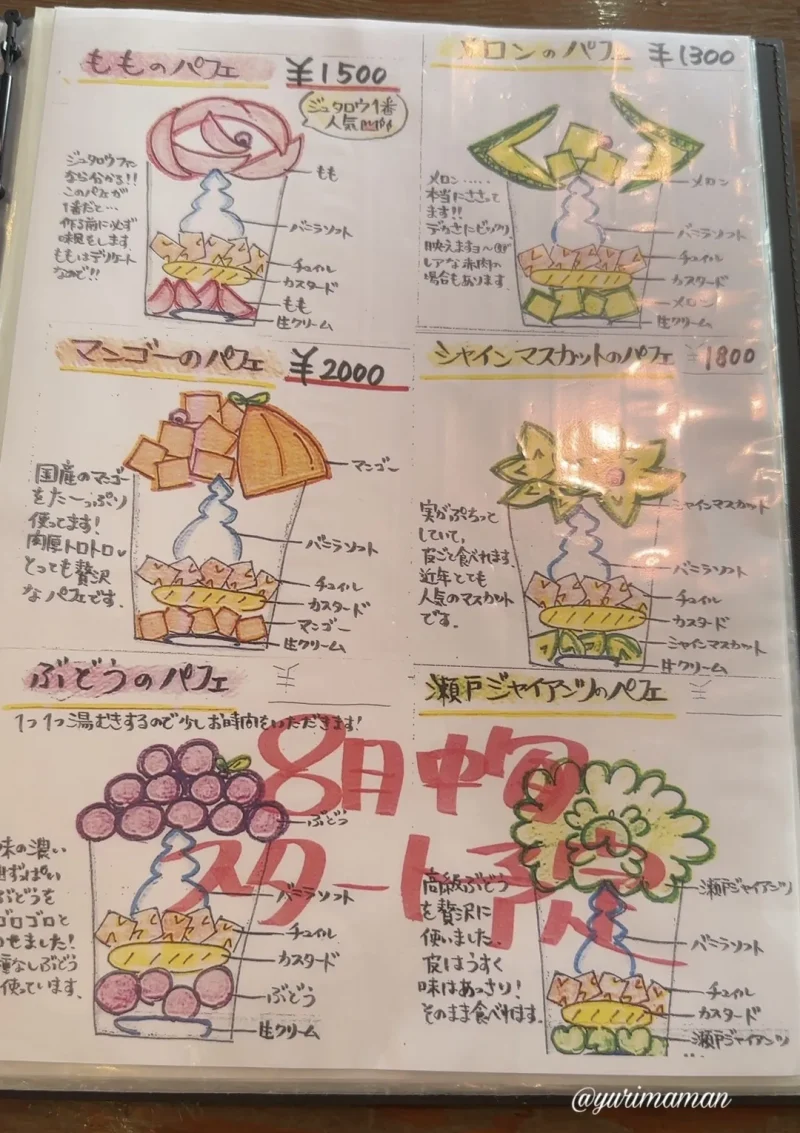 もものパフェ ¥1500
ジュタロウ1番
人気
ジュタロウファン
なら分かる!!
このパフェが
1番だと…
作る前に必ず
味見をします
ももはデリケート
なので!!
もも
バニラソフト
チュイル
カスタード
もも
生クリーム
メロンのパフェ ¥1300
メロン……
本当にささって
ます!!
デカさにビックリ
映えますヨ〜
レアな赤肉の
場合もあります。
メロン
バニラソフト
チュイル
カスタード
メロン
生クリーム
マンゴーのパフェ ¥2000
国産のマンゴー
をた〜っぷり
使ってます!
肉厚トロトロ
とっても贅沢
なパフェです。
マンゴー
バニラソフト
チュイル
カスタード
マンゴー
生クリーム
シャインマスカットのパフェ ¥1800
実がぷちって
していて、
皮ごと食べれます。
近年とても
人気のマスカット
です。
シャインマスカット
バニラソフト
チュイル
カスタード
シャインマスカット
生クリーム
ぶどうのパフェ ¥
1つ1つ湯むきするので少しお時間をいただきます!
味の濃い
ぶどうを
ゴロゴロと
のせました!
種なしぶどう
使っています。
ぶどう
バニラソフト
チュイル
カスタード
ぶどう
生クリーム
瀬戸ジャイアンツのパフェ ¥
高級ぶどう
を贅沢に
使いました。
皮はうすく
味はあっさり!
そのまま食べれます。
瀬戸ジャイアンツ
バニラソフト
チュイル
カスタード
瀬戸ジャイアンツ
8月中旬
スタート予定
@yurimaman